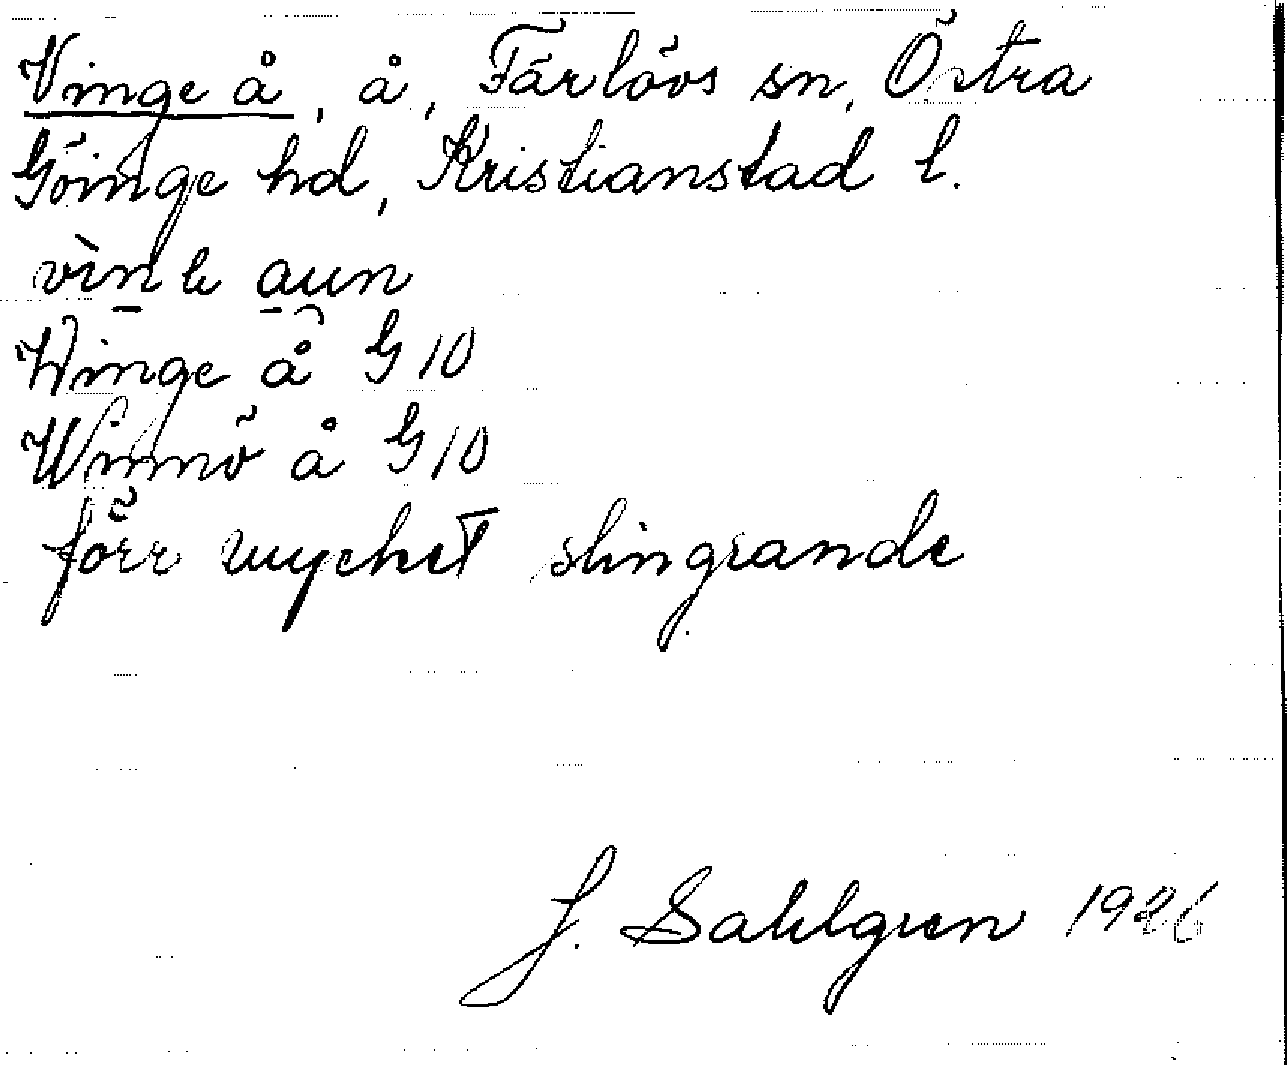 Vinge å, å, Färlövs sn, Östra
Göinge hd, Kristianstad l.
Winge å G 10
Winnö å G 10
förr mycket slingrande
J. Sahlgren 1926